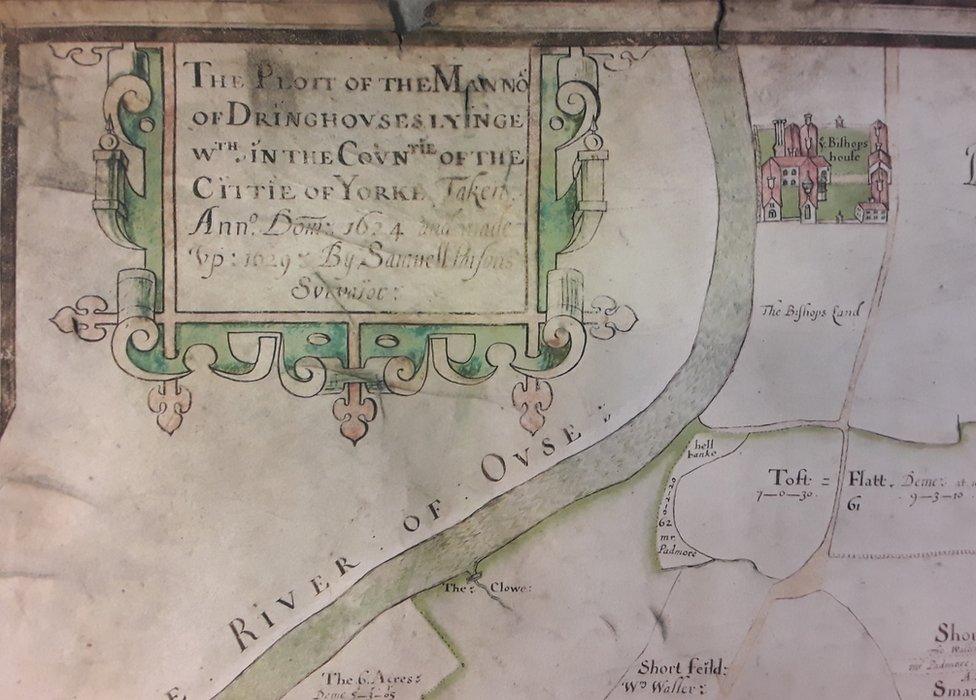 THE PLOTT OF THE MANNO
OF DRINGHOVSES LYINGE
WTH. IN THE COVNTIE OF THE
CITTIE OF YORKE Taken
Anno. Dom: 1624 and made
Vp: 1629: By Samuell Parsons
Survaior:
ye. Bishops
house
The Bishops Land
hell
banke
Toft =
7-0-30.
Flatt. Deme:
9-3-10
61
0-2-20
62
mr.
Padmore
RIVER OF OVSE
The: Clowe:
The 6 Acres:
Deme 5-3-05
Short feild:
Wm Waller:
Shor
mr Padmore
Smal